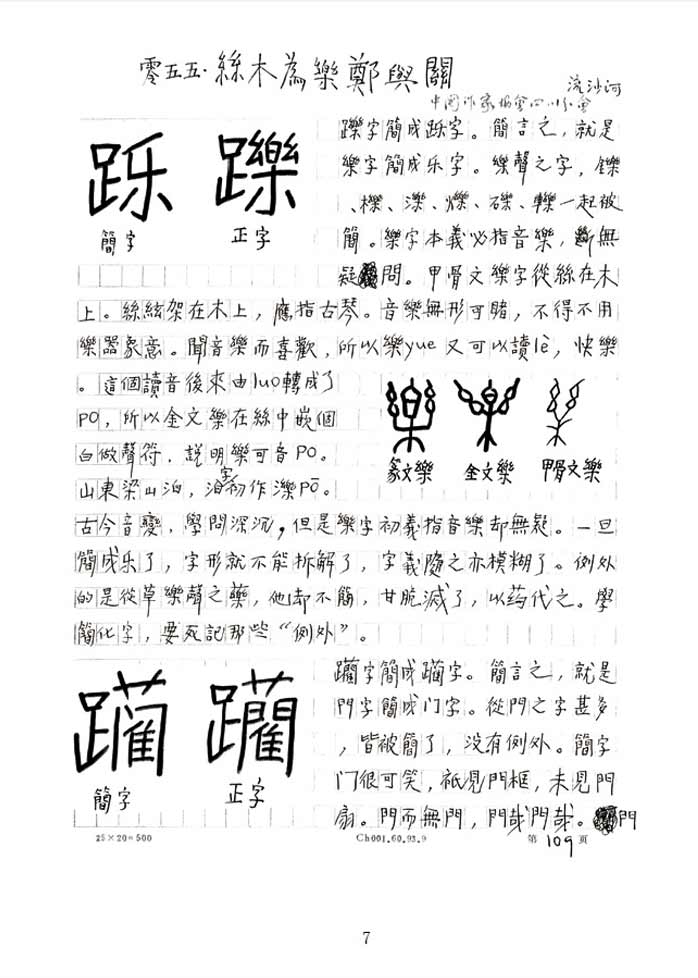 零五五·絲木為樂鄭與關
流沙河
中國作家協會四川分會
跞 躒
簡字 正字
躒字簡成跞字。簡言之，就是
樂字簡成乐字。樂聲之字，鑠
、櫟、濼、爍、礫、轢一起被
簡。樂字本義必指音樂，斷無
疑問。甲骨文樂字從絲在木
上。絲絃架在木上，應指古琴。音樂無形可睹，不得不用
樂器象意。聞音樂而喜歡，所以樂yue又可以讀lè，快樂
。這個讀音後來由luo轉成了
po，所以金文樂在絲中嵌個
白做聲符，説明樂可音po。
山東梁山泊，泊字初作濼pō。
篆文樂 金文樂 甲骨文樂
古今音變，學問深沉，但是樂字初義指音樂却無疑。一旦
簡成乐了，字形就不能拆解了，字義隨之亦模糊了。例外
的是從草樂聲之藥，他却不簡，甘脆滅了，以药代之。學
簡化字，要死記那些“例外”。
躪
簡字 正字
字簡成 字。簡言之，就是
門字簡成门字。從門之字甚多
，皆被簡了，没有例外。簡字
门很可笑，衹見門框，未見門
扇。門而無門，門哉門哉。門
25×20=500
Ch001.60.93.9
第109页
7